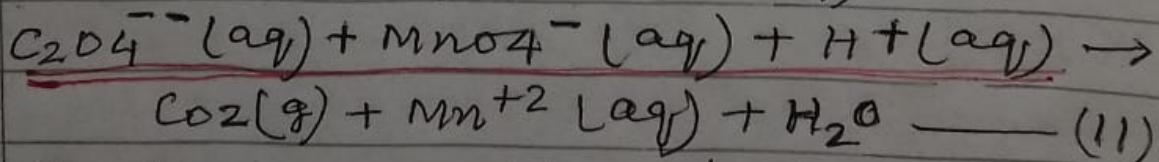 C2O4⁻⁻ (aq) + MnO4⁻ (aq) + H+ (aq) →
CO2(g) + Mn⁺² (aq) + H₂O —— (11)